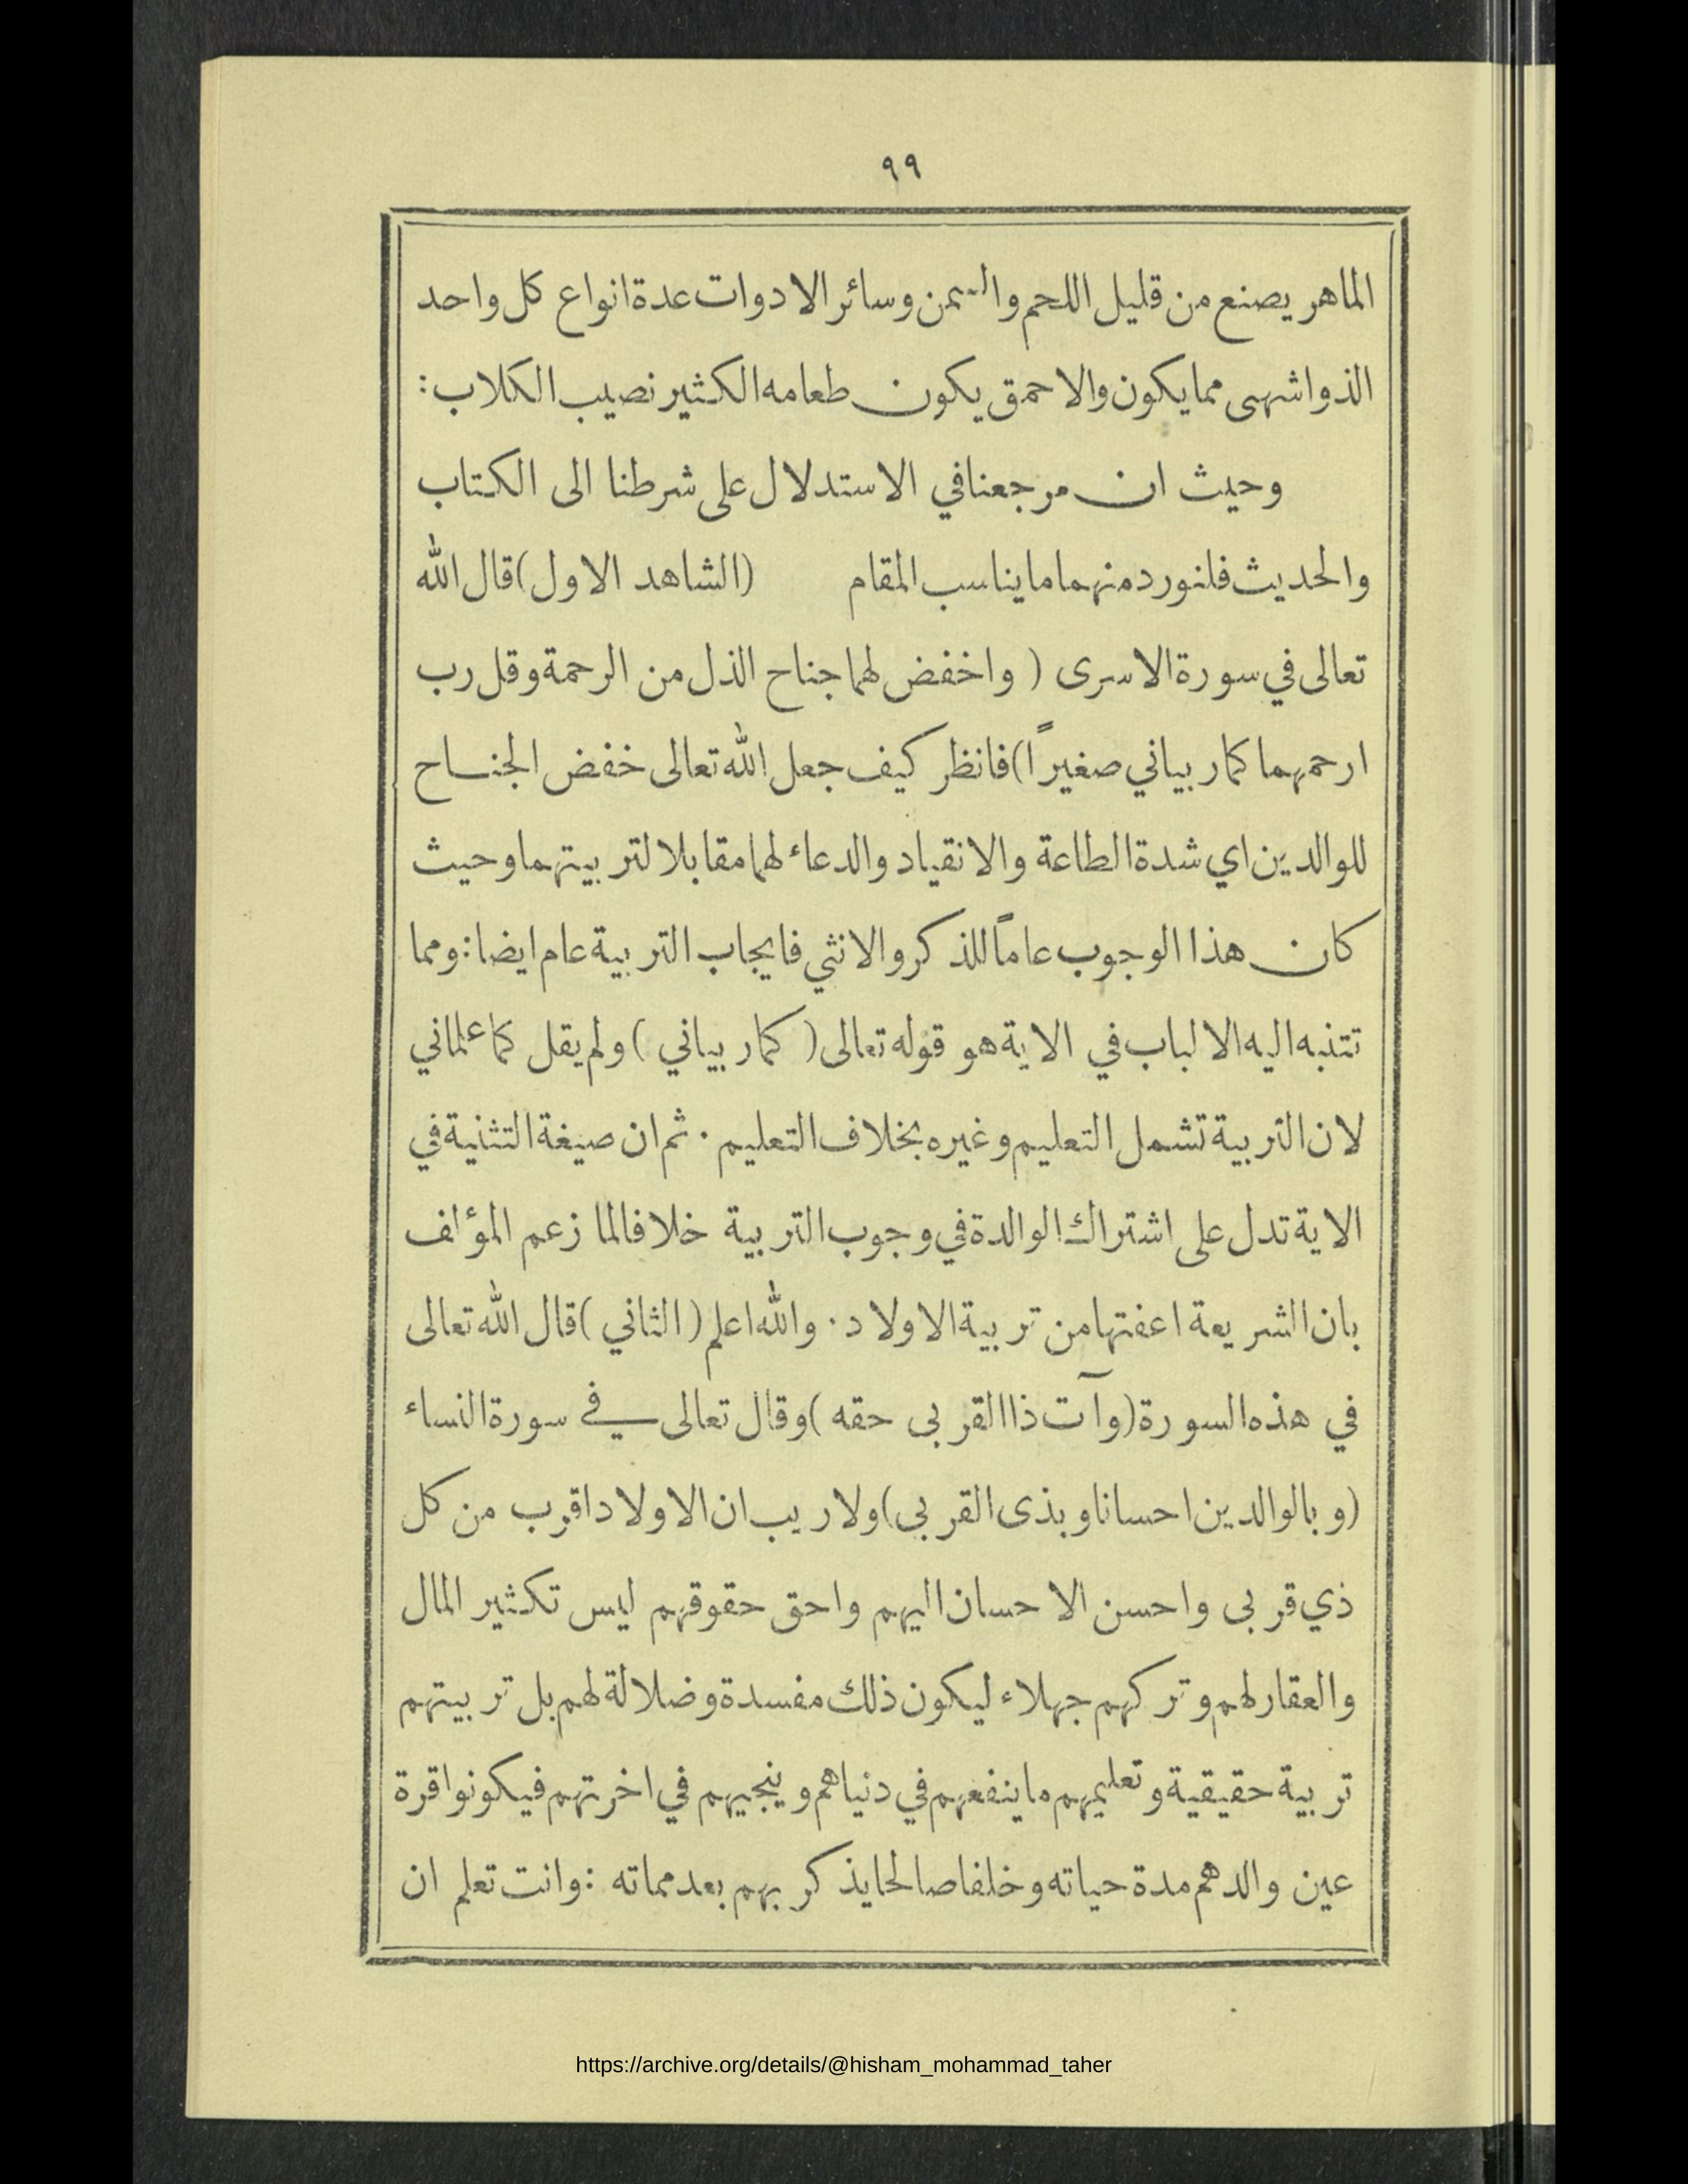 ٩٩
الماهر يصنع من قليل اللحم والسمن وسائر الادوات عدة انواع كل واحد
الذ واشهى مما يكون والاحمق يكون طعامه الكثير نصيب الكلاب :
وحيث ان مرجعنا في الاستدلال على شرطنا الى الكتاب
والحديث فلنورد منهما ما يناسب المقام (الشاهد الاول) قال الله
تعالى في سورة الاسرى ( واخفض لهما جناح الذل من الرحمة وقل رب
ارحمهما كما ربياني صغيراً) فانظر كيف جعل الله تعالى خفض الجناح
للوالدين اي شدة الطاعة والانقياد والدعاء لهما مقابلا لتربيتهما وحيث
كان هذا الوجوب عاماً للذكر والانثي فايجاب التربية عام ايضا : ومما
تتنبه اليه الالباب في الاية هو قوله تعالى ( كما ربياني ) ولم يقل كما علماني
لان التربية تشمل التعليم وغيره بخلاف التعليم . ثم ان صيغة التثنية في
الاية تدل على اشتراك الوالدة في وجوب التربية خلافا لما زعم المؤلف
بان الشريعة اعفتها من تربية الاولاد . والله اعلم ( الثاني ) قال الله تعالى
في هذه السورة ( وآت ذا القربى حقه ) وقال تعالى في سورة النساء
( وبالوالدين احسانا وبذى القربى ) ولا ريب ان الاولاد اقرب من كل
ذي قربى واحسن الاحسان اليهم واحق حقوقهم ليس تكثير المال
والعقار لهم وتركهم جهلاء ليكون ذلك مفسدة وضلالة لهم بل تربيتهم
تربية حقيقية وتعليمهم ما ينفعهم في دنياهم وينجيهم في اخرتهم فيكونوا قرة
عين والدهم مدة حياته وخلفا صالحا يذكر بهم بعد مماته : وانت تعلم ان
https://archive.org/details/@hisham_mohammad_taher